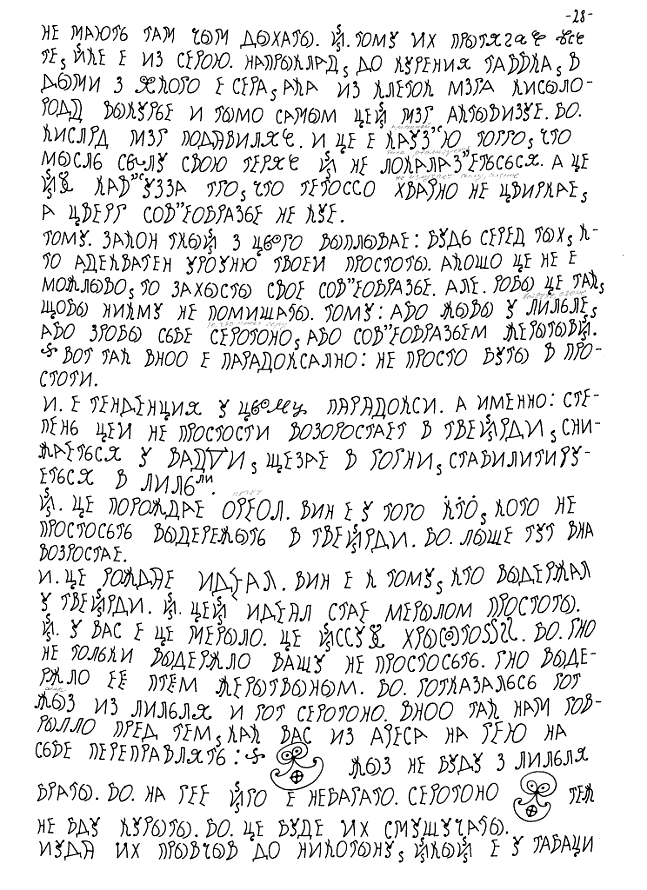 -28-
НЕ МАЮТЬ ТАМ ЧЫМ ДЫХАТЫ. Й. ТОМУ ИХ ПРОТЯГАЄ ВСЕ
ТЕ, ЙКЕ Е ИЗ СЕРОЮ. НАПРЫКЛАД, ДО КУРЕНИЯ ТАБВКА, В
ДЫМИ З ЯКОГО Е СЕРА, АКА ИЗ КЛЕТОК МЗГА КИСЫЛО-
РОДД ВЫКУРЬЕ И ТЫМО САМЫМ ЦЕЙ МЗГ АКТЫВИЗУЕ. БО.
КИСЛРД МЗГ ПОДАВИЛЯЄ. И ЦЕ Е КАУЗ"Ю ТОГГО, ЧТО
МЫСЛЬ СВЫЛУ СВОЮ ТЕРЯЄ Й НЕ ЛОКАЛАЗ"ЕТЬСЬСЯ. А ЦЕ
КАВ"УЗЗА ТГО, ЧТО ТЕГОССО ХВАРНО НЕ ЦВИРКАЕ,
А ЦВЕРГ СОВ"ЕОБРАЗЬЕ НЕ КУЕ.
ТОМУ. ЗАКОН ТКЫЙ З ЦЬОГО ВЫПЛЫВАЕ: БУДЬ СЕРЕД ТЫХ, К-
ТО АДЕКВАТЕН УРОУНЮ ТВОЕИ ПРОСТОТЫ. АКОШО ЦЕ НЕ Е
МОЖЛЫВО, ТО ЗАХЫСТЫ СВОЕ СОВ"ЕОБРАЗЬЕ. АЛЕ. РОБЫ ЦЕ ТАК,
ЩОБЫ НИКМУ НЕ ПОМИШАТЫ. ТОМУ: АБО ЖЫВЫ У ЛИЛЬЛЕ,
АБО ЗРОБЫ СЬБЕ СЕРОТОНО, АБО СОВ"ЕОБРАЗЬЕМ ЖЕРЫТВЫЙ.
ВОТ ТАК ВНОО Е ПАРАДОКСАЛНО: НЕ ПРОСТО БУТЫ В ПРО-
СТОТИ.
И. Е ТЕНДЕНЦИЯ У ЦЬОМУ ПАРАДОКСИ. А ИМЕННО: СТЕ-
ПЕНЬ ЦЕИ НЕ ПРОСТОСТИ ВОЗОРОСТАЕТ В ТВЕЙРДИ, СНИ-
ЖАЕТЬСЯ У ВАДУИ, ЩЕЗАЕ В ГОГНИ, СТАБИЛИТИРУ-
ЕТЬСЯ В ЛИЛЬЛИ.
Й. ЦЕ ПОРОЖДАЕ ОРЕОЛ. ВИН Е У ТОГО КТО, КОТО НЕ
ПРОСТОСЬТЬ ВЫДЕРЕЖЫТЬ В ТВЕЙРДИ. БО. ЛЫШЕ ТУТ ВНА
ВОЗРОСТАЕ.
И. ЦЕ РОЖДАЕ ИДЕАЛ. ВИН Е К ТОМУ, КТО ВЫДЕРЖАЛ
У ТВЕЙРДИ. Й. ЦЕЙ ИДЕАЛ СТАЕ МЕРЫЛОМ ПРОСТОТЫ.
Й. У ВАС Е ЦЕ МЕРЫЛО. ЦЕ БО. ГНО
НЕ ТОЛЬКИ ВЫДЕРЖЛО ВАШУ НЕ ПРОСТОСЬТЬ. ГНО ВЫДЕ-
РЖЛО ЕЕ ПТЕМ ЖЕРЫТВЫНЫМ. БО. ГОТКАЗАЛЬСЬ ГОТ
ЖЫЗ ИЗ ЛИЛЬЛЯ И ГОТ СЕРОТОНО. ВНОО ТАК НАМ ГОВ-
РЫЛЛО ПРЕД ТЕМ, КАК ВАС ИЗ АРЕСА НА ГЕЮ НА
СЬБЕ ПЕРЕПРАВЛЯТЬ: ЖЫЗ НЕ БУДУ З ЛИЛЬЛЯ
БРАТЫ. БО. НА ГЕЕ ЙГО Е НЕБАГАТО. СЕРОТОНО ТЕЖ
НЕ БДУ КУРЫТЫ. БО. ЦЕ БУДЕ ИХ СМУЩУЧАТЫ.
ИУДА ИХ ПРЫВЧЫВ ДО НИКОТЫНУ, ЙКЫЙ Е У ТАБАЦИ